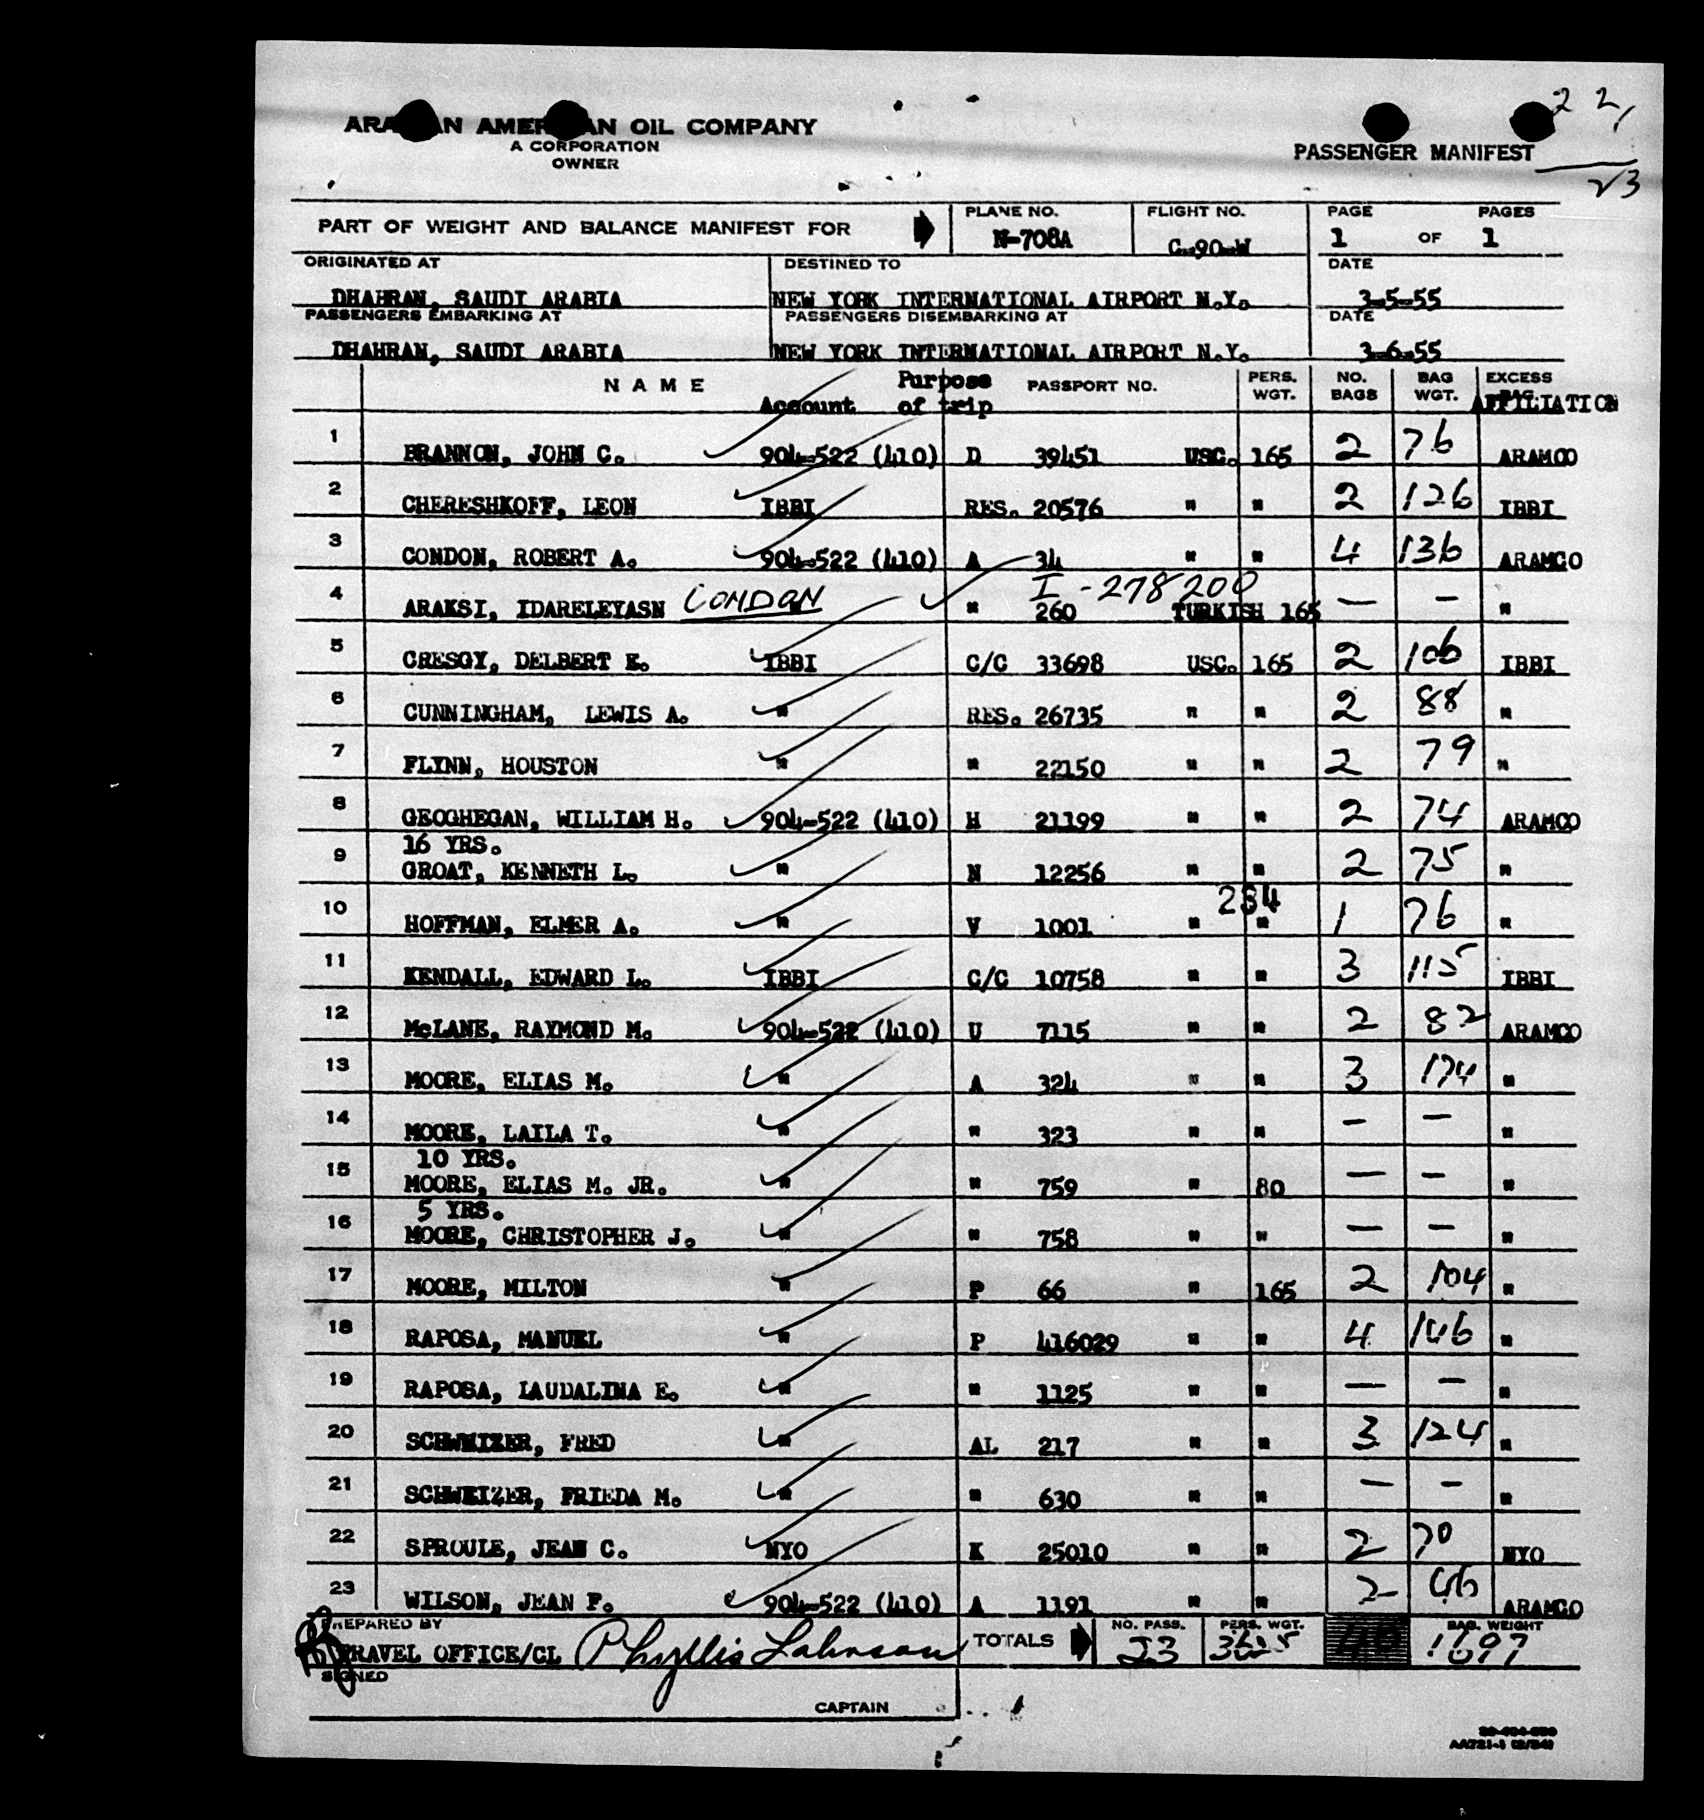 22/
ARABIAN AMERICAN OIL COMPANY
A CORPORATION
OWNER
PASSENGER MANIFEST
23
PART OF WEIGHT AND BALANCE MANIFEST FOR PLANE NO. N-708A FLIGHT NO. C-90-W PAGE 1 OF PAGES 1
ORIGINATED AT DESTINED TO DATE
DHAHRAN, SAUDI ARABIA NEW YORK INTERNATIONAL AIRPORT N.Y. 3-5-55
PASSENGERS EMBARKING AT PASSENGERS DISEMBARKING AT DATE
DHAHRAN, SAUDI ARABIA NEW YORK INTERNATIONAL AIRPORT N.Y. 3-6-55
NAME Account Purpose of trip PASSPORT NO. PERS. WGT. NO. BAGS BAG WGT. EXCESS AFFILIATION
1 BRANNON, JOHN C. 904-522 (410) D 39451 USC. 165 2 76 ARAMCO
2 CHERESHKOFF, LEON IBBI RES. 20576 " " 2 126 IBBI
3 CONDON, ROBERT A. 904-522 (410) A 34 " " 4 136 ARAMCO
I-278200
4 ARAKSI, IDARELEYASN CONDON " 260 TURKISH 165 — — "
5 CRESGY, DELBERT E. IBBI C/C 33698 USC. 165 2 106 IBBI
6 CUNNINGHAM, LEWIS A. " RES. 26735 " " 2 88 "
7 FLYNN, HOUSTON " " 22150 " " 2 79 "
8 GEOGHEGAN, WILLIAM H. 904-522 (410) H 21199 " " 2 74 ARAMCO
16 YRS.
9 GROAT, KENNETH L. " N 12256 " " 2 75 "
234
10 HOFFMAN, ELMER A. " V 1001 " " 1 76 "
11 KENDALL, EDWARD L. IBBI C/C 10758 " " 3 115 IBBI
12 McLANE, RAYMOND M. 904-522 (410) U 7115 " " 2 82 ARAMCO
13 MOORE, ELIAS M. " A 324 " " 3 174 "
14 MOORE, LAILA T. " " 323 " " — — "
10 YRS.
15 MOORE, ELIAS M. JR. " " 759 " 80 — — "
5 YRS.
16 MOORE, CHRISTOPHER J. " " 758 " " — — "
17 MOORE, MILTON " P 66 " 165 2 104 "
18 RAPOSA, MANUEL " P 416029 " " 4 146 "
19 RAPOSA, LAUDALINA E. " " 1125 " " — — "
20 SCHWEIZER, FRED " AL 217 " " 3 124 "
21 SCHWEIZER, FRIEDA M. " " 630 " " — — "
22 SPROULE, JEAN C. NYO K 25010 " " 2 70 NYO
23 WILSON, JEAN F. 904-522 (410) A 1191 " " 2 46 ARAMCO
PREPARED BY NO. PASS. PERS. WGT. BAG. WEIGHT
TRAVEL OFFICE/CL Phyllis Lahnson TOTALS 23 40 1697
SIGNED
CAPTAIN
AA721-1 (2/54)